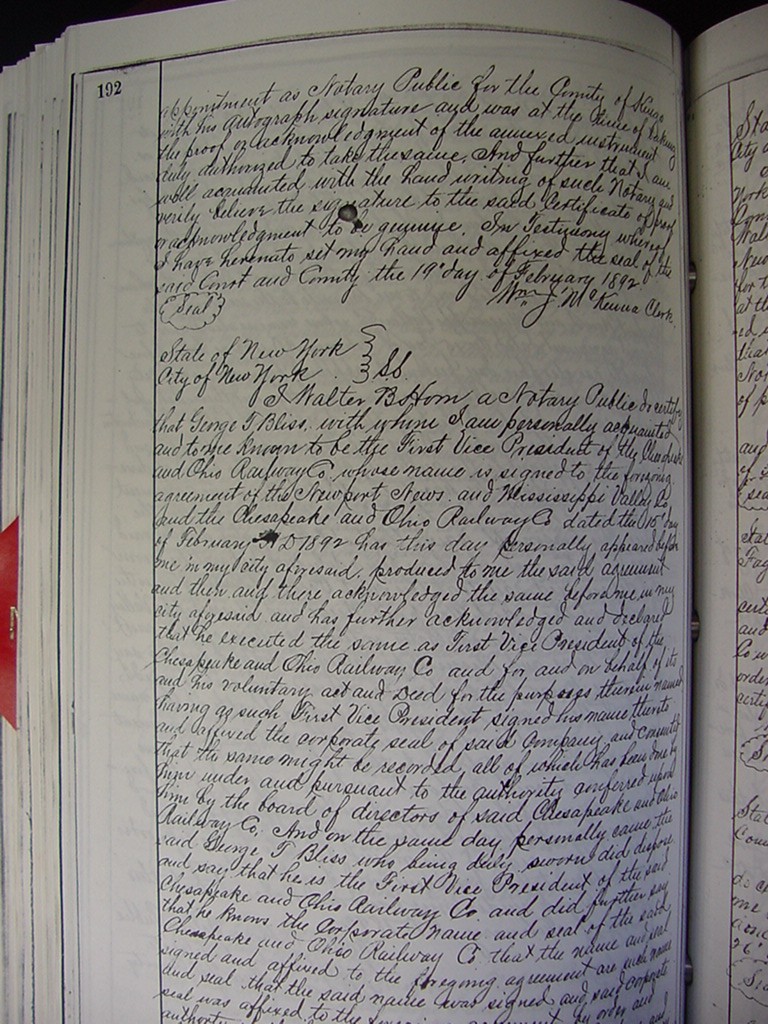 192
appointment as Notary Public for the County of Kings
with his autograph signature and was at the time of taking
the proof or acknowledgment of the annexed instrument
duly authorized to take the same. And further that I am
well acquainted with the hand writing of such Notary and
verily believe the signature to the said Certificate of proof
or acknowledgment to be genuine. In Testimony whereof
I have hereunto set my hand and affixed the seal of the
said Court and County the 19" day of February 1892
Wm J. McKenna Clerk.
(Seal)
State of New York
City of New York } S.S.
I Walter B Horn a Notary Public do certify
that George T Bliss, with whom I am personally acquainted
and to me known to be the First Vice President of the Chesapeake
and Ohio Railway Co whose name is signed to the foregoing
agreement of the Newport News and Mississippi Valley Co
and the Chesapeake and Ohio Railway Co dated the 15" day
of February A D 1892 has this day personally appeared before
me in my city aforesaid, produced to me the said agreement
and then and there acknowledged the same before me in my
city aforesaid and has further acknowledged and declared
that he executed the same as First Vice President of the
Chesapeake and Ohio Railway Co and for and on behalf of its
and his voluntary act and Deed for the purposes therein named
having as such First Vice President signed his name thereto
and affixed the corporate seal of said Company and consents
that the same might be recorded, all of which has been done by
him under and pursuant to the authority conferred upon
him by the board of directors of said Chesapeake and Ohio
Railway Co. And on the same day personally came the
said George T Bliss who being duly sworn did depose
and say that he is the First Vice President of the said
Chesapeake and Ohio Railway Co. and did further say
that he knows the corporate name and seal of the said
Chesapeake and Ohio Railway Co that the name and seal
signed and affixed to the foregoing agreement are such name
and seal that the said name was signed and said corporate
seal was affixed to the foregoing agreement by order and